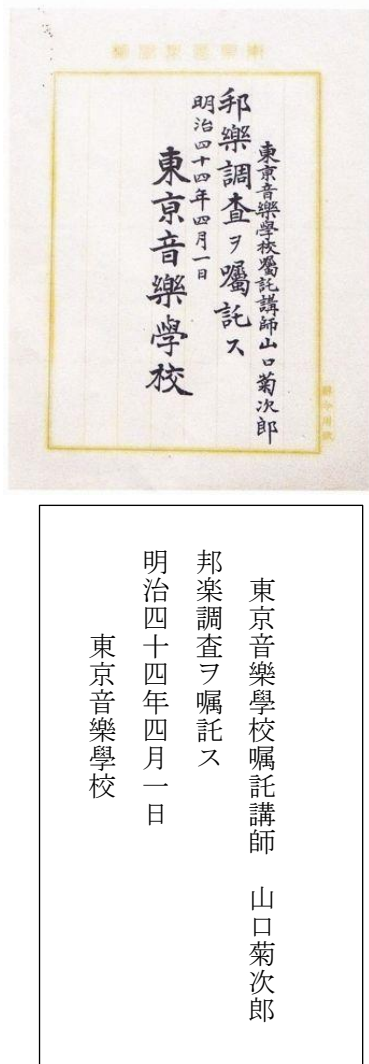 東京音樂學校屬託講師山口菊次郎
邦樂調査ヲ囑託ス
明治四十四年四月一日
東京音樂學校
東京音樂學校嘱託講師　山口菊次郎
邦楽調査ヲ嘱託ス
明治四十四年四月一日
東京音樂學校